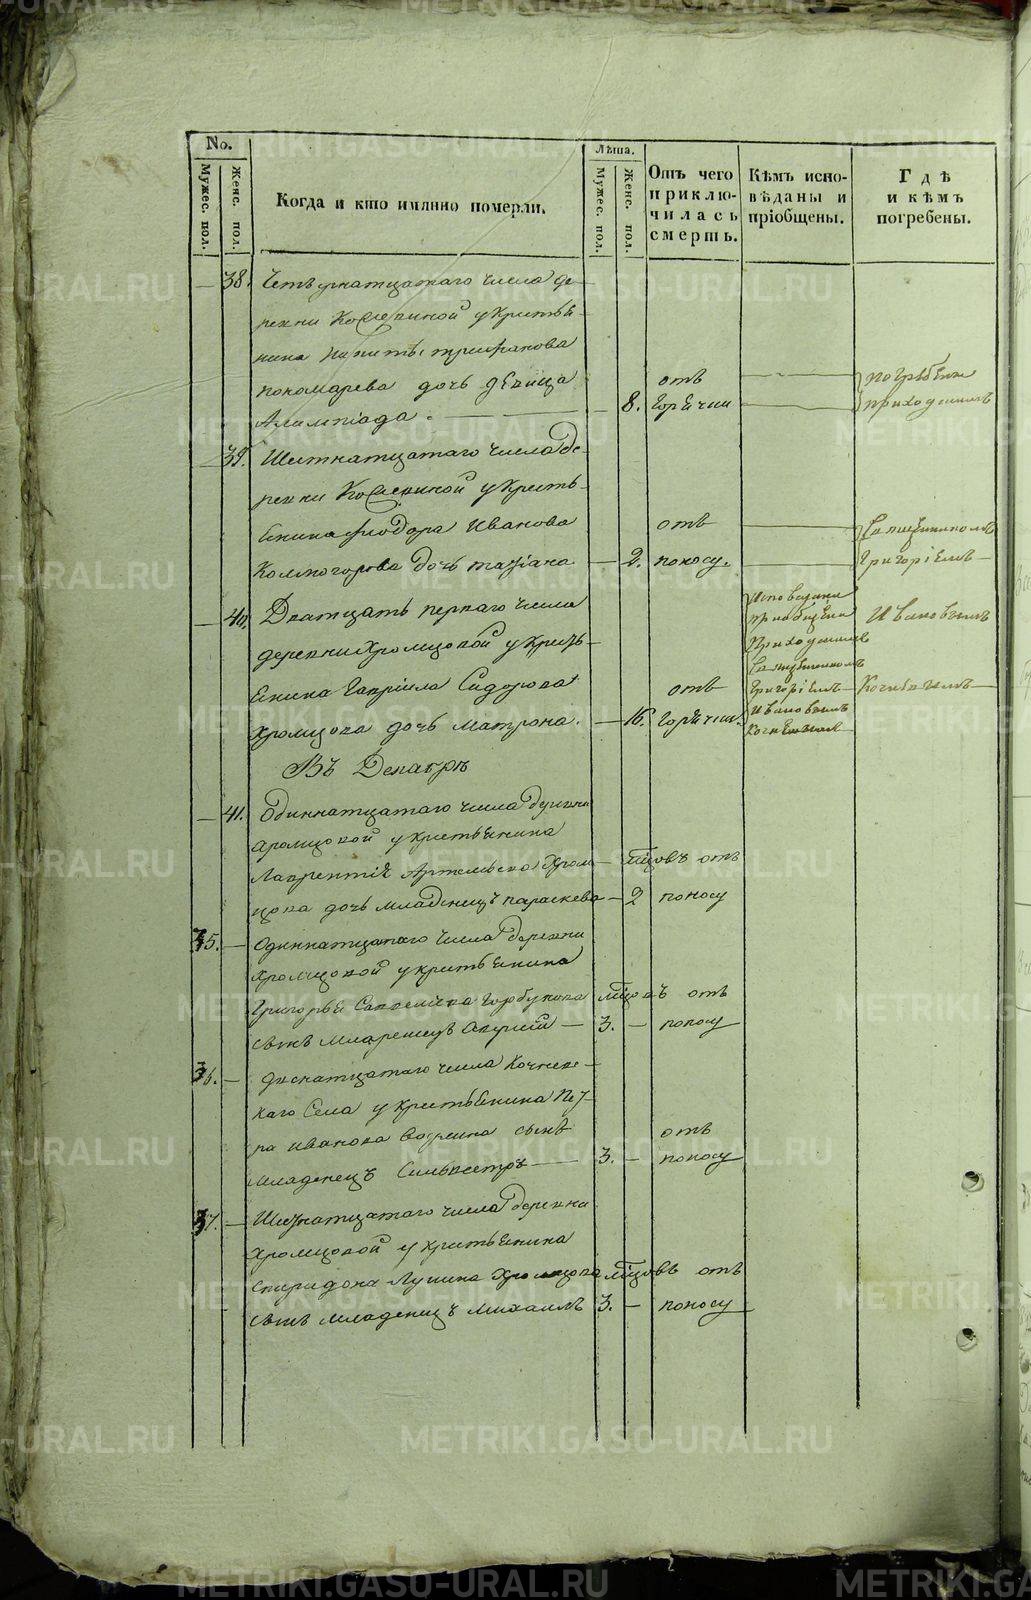 No.
Мужес. пол.
Женс. пол.
Когда и кто имянно померли.
Лѣта.
Мужес. пол.
Женс. пол.
Отъ чего
приклю-
чилась
смерть.
Кѣмъ испо-
вѣданы и
пріобщены.
Гдѣ
и кѣмъ
погребены.
— 38. Четырнатцатаго числа де-
ревни Кошелиной у крестья-
нина Никиты Трифанова
пономарева дочь дѣвица
Алимпіада — 8. отъ Горячки
погребены
приходскимъ
— 39. Шестнатцатаго числа де-
ревни Кошелиной у кресть-
енина Фиодора Иванова
Колмогорова дочь татіана — 2. отъ поносу.
священникомъ
Григоріемъ —
— 40. Дватцать перваго числа
деревни Хромцовой у кресть-
енина Гавріила Сидорова
Хромцова дочь Матрона. — 16. отъ Горячки.
Исповедана
приобщена
Приходскимъ
Священникомъ
Григоріемъ
Ивановымъ
Ивановымъ
Въ Декабрѣ
— 41. Одиннатцатаго числа деревни
Хромцовой у крестьянина
Лаврентія Артемьева Хром-
цова дочь младенецъ параскева — 2 мѣсцовъ отъ поносу
35. — Одиннатцатаго числа деревни
Хромцовой у крестьянина
Григорья Савельева Горбунова
сынъ младенецъ — 3. — мѣсцовъ отъ поносу
36. — числа Кочнев-
каго Села у крестьянина Пет-
ра Иванова сынъ
младенецъ Сильвестръ — 3. — отъ поносу
37. — Шеснатцатаго числа деревни
Хромцовой у крестьянина
Спиридона Лукина Хромцова
сынъ младенецъ Михаилъ 3. — мѣсцовъ отъ поносу
METRIKI.GASO-URAL.RU